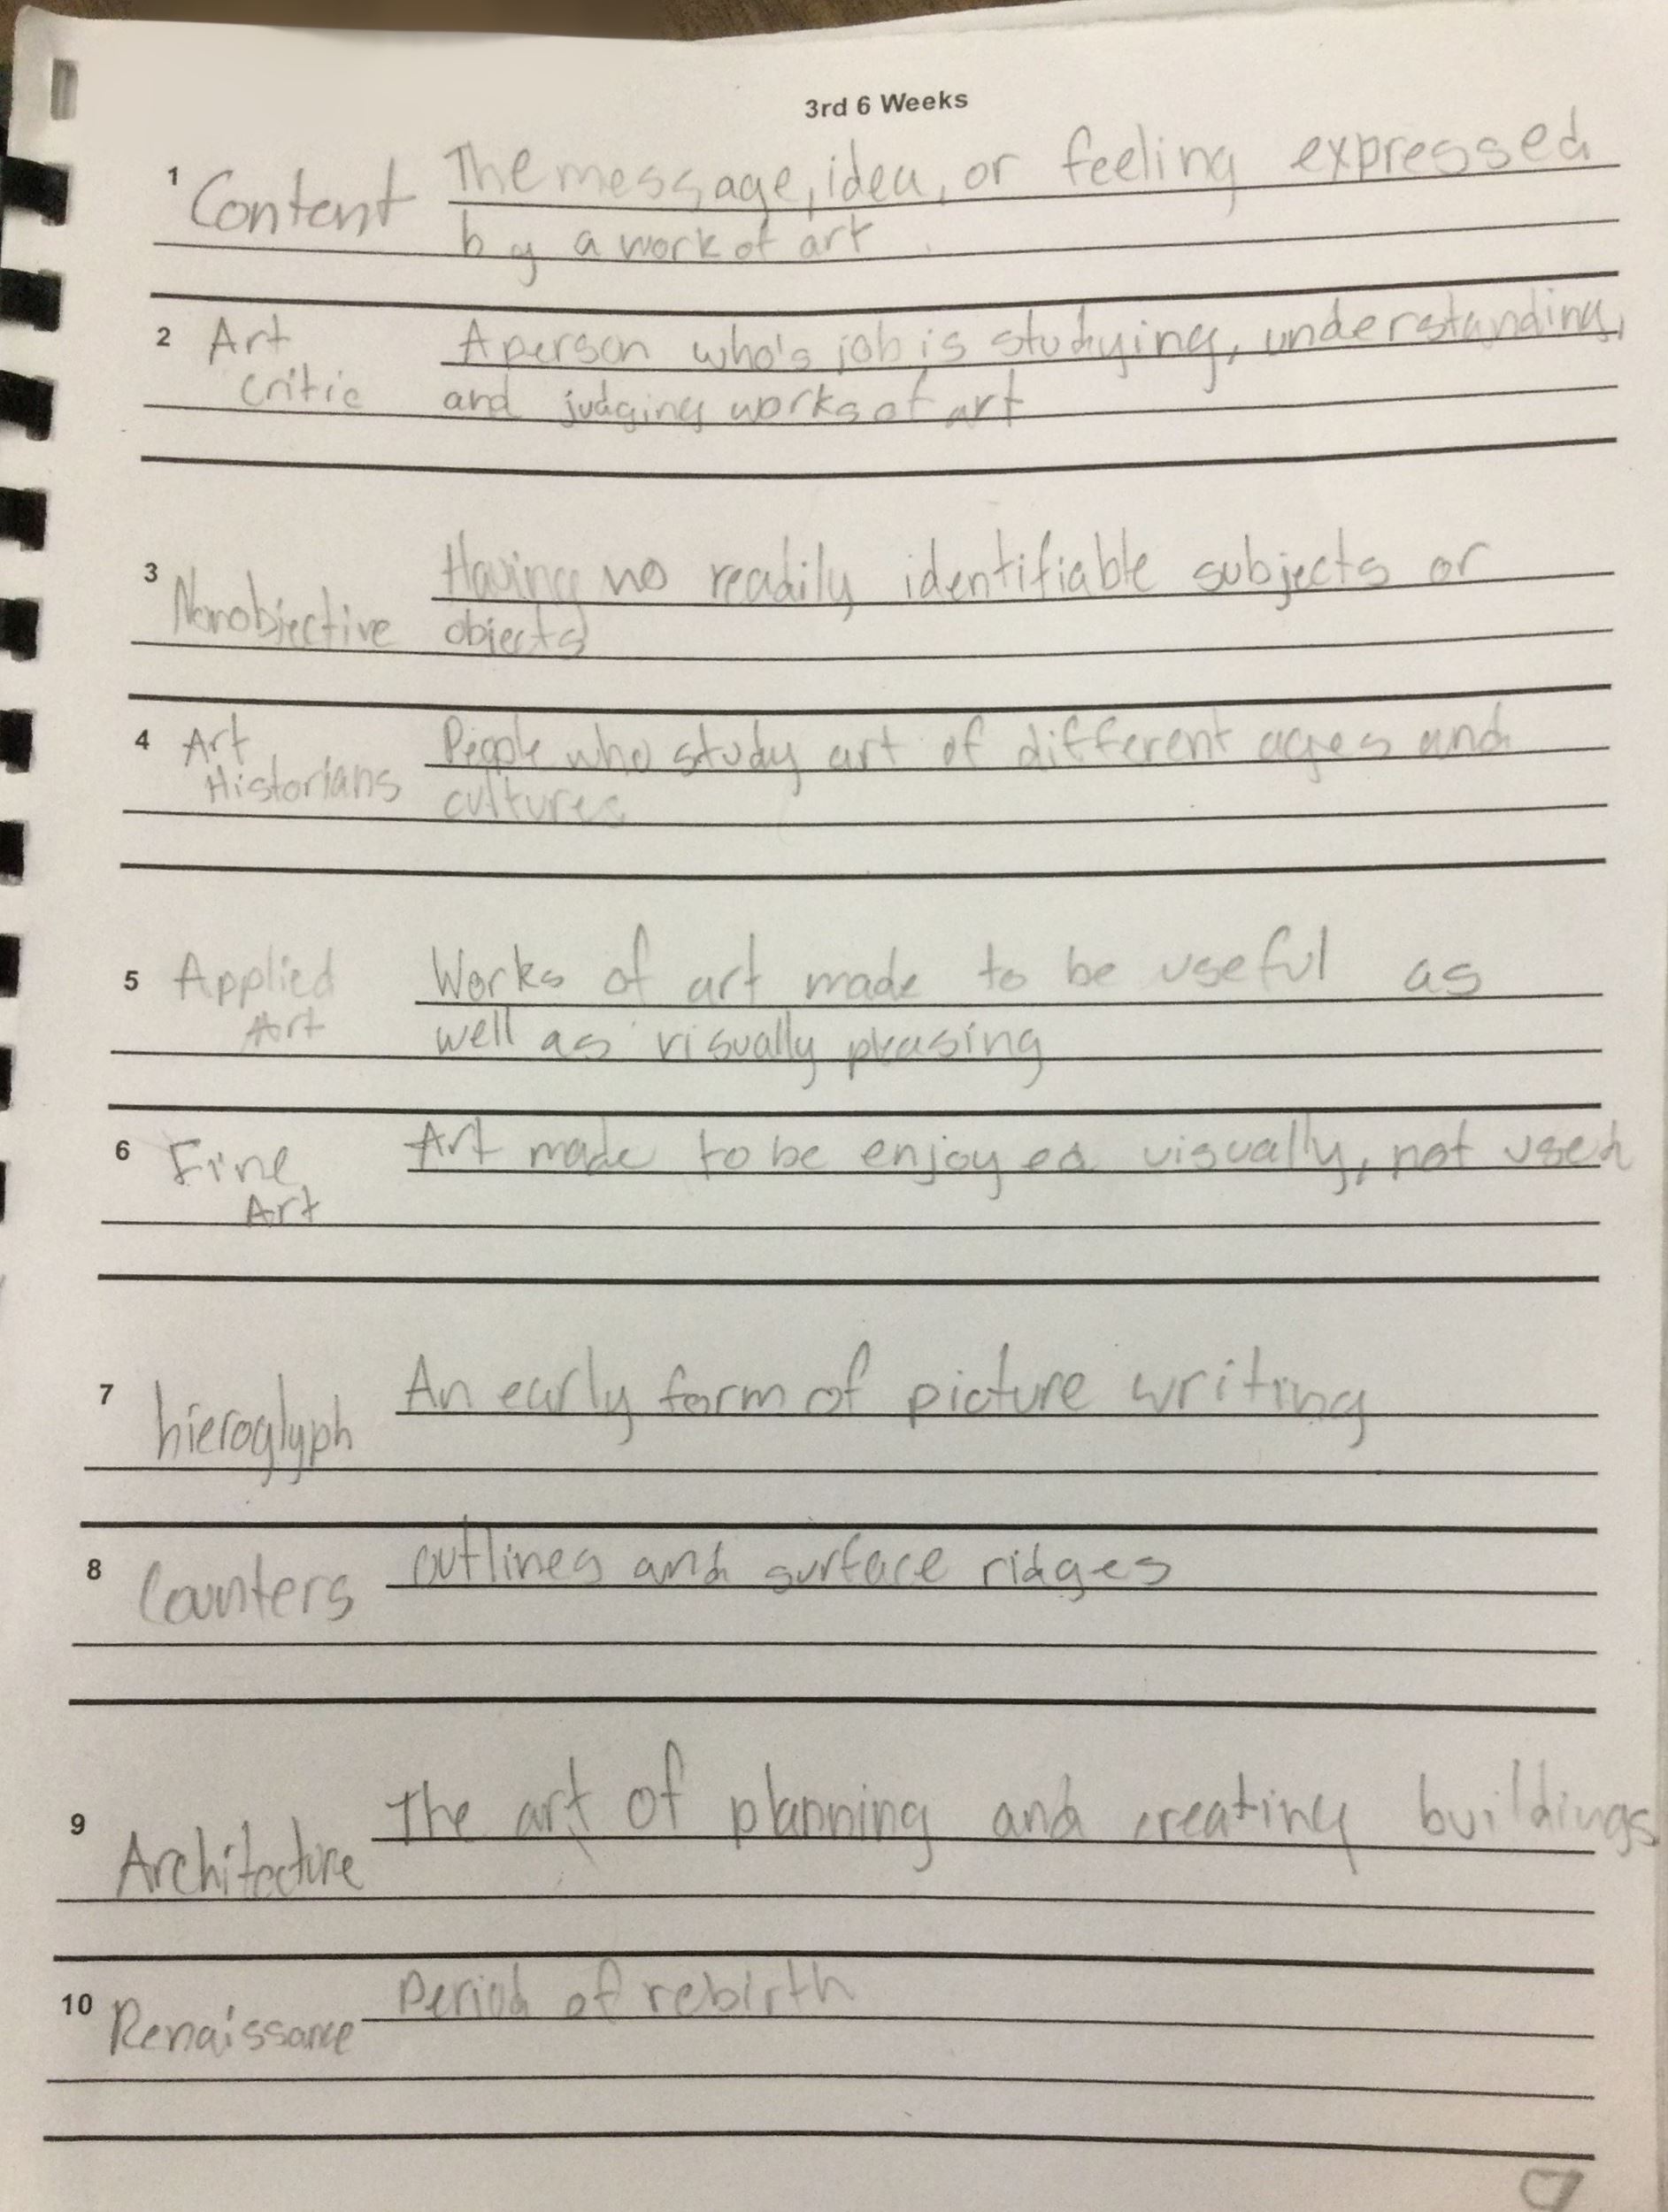 3rd 6 Weeks
1 Content The message, idea, or feeling expressed
by a work of art
2 Art Critic A person who's job is studying, understanding,
and judging works of art
3 Nonobjective Having no readily identifiable subjects or
objects
4 Art Historians People who study art of different ages and
cultures
5 Applied Art Works of art made to be useful as
well as visually pleasing
6 Fine Art Art made to be enjoyed visually, not used
7 hieroglyph An early form of picture writing
8 Counters outlines and surface ridges
9 Architecture The art of planning and creating buildings
10 Renaissance Period of rebirth